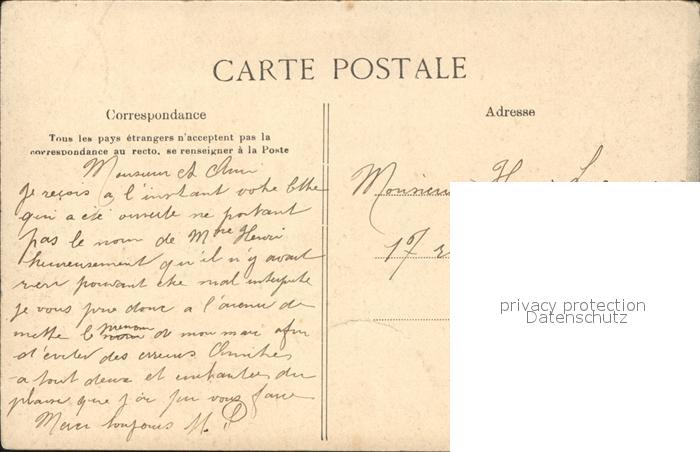 CARTE POSTALE
Correspondance
Adresse
Tous les pays étrangers n'acceptent pas la
correspondance au recto, se renseigner à la Poste
Monsieur et Ami
Je reçois a l'instant votre lettre
qui a été ouverte ne portant
pas le nom de Mme Henri
heureusement qu'il n'y avait
rien pouvant etre mal interprete
je vous prie donc a l'avenir de
mettre le nom prenom de mon mari afin
d'eviter des erreurs Amities
a tout deux et enchantée du
plaisir que j'ai pu vous faire
Merci toujours M. P
Monsieur
17
privacy protection
Datenschutz